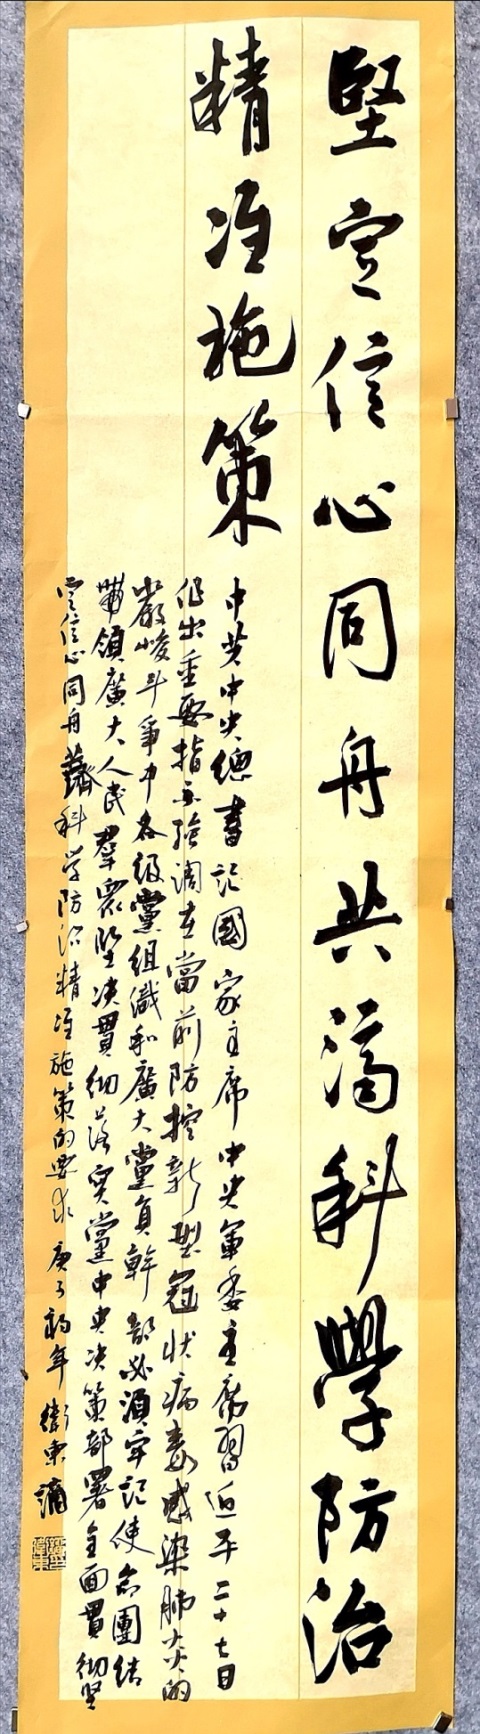 堅定信心同舟共濟科學防治
精准施策
中共中央總書記國家主席中央軍委主席習近平二十七日
作出重要指示強調在當前防控新型冠狀病毒感染肺炎的
嚴峻斗爭中各級黨組織和廣大黨員幹部必須牢記使命團結
帶領廣大人民群眾堅决貫彻落实黨中央决策部署全面貫彻坚
定信心同舟共濟科学防治精准施策的要求 庚子 年衛東